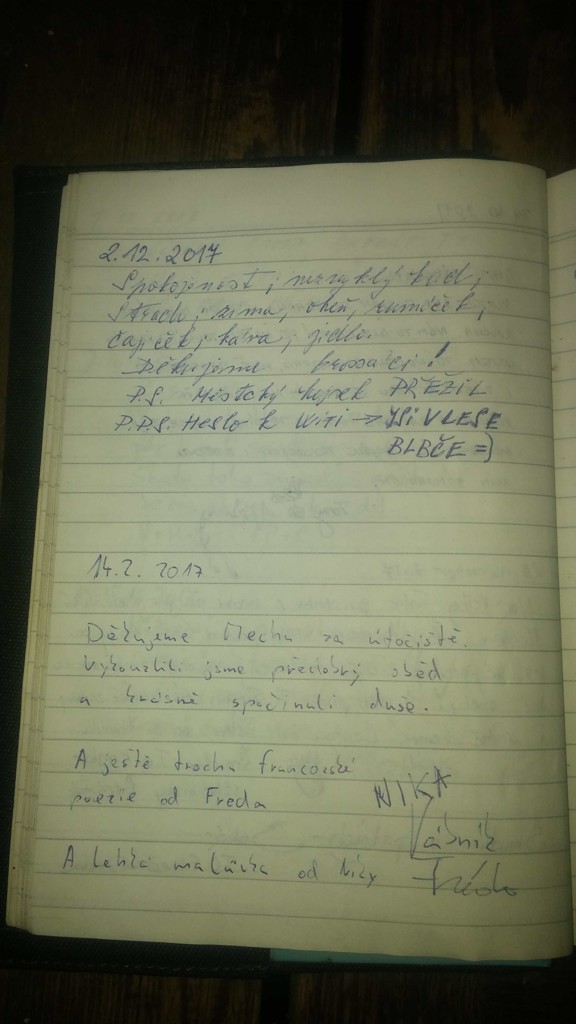 2.12.2017
Spokojenost, nezvyklý klid,
zima, oheň, rumíček,
čajíček, kafra, jídlo.
Děkujeme !
P.S. Místický hejsek PŘEŽIL
P.P.S. Heslo k WiFi → JSI V LESE
BLBČE =)
14.2. 2017
Děkujeme Mechu za útočiště.
Vykouzlili jsme předobrý oběd
a krásně spočinuli duše.
A ještě trochu francouzské
poezie od Freda
A lehká malůvka od Niky
NIKA